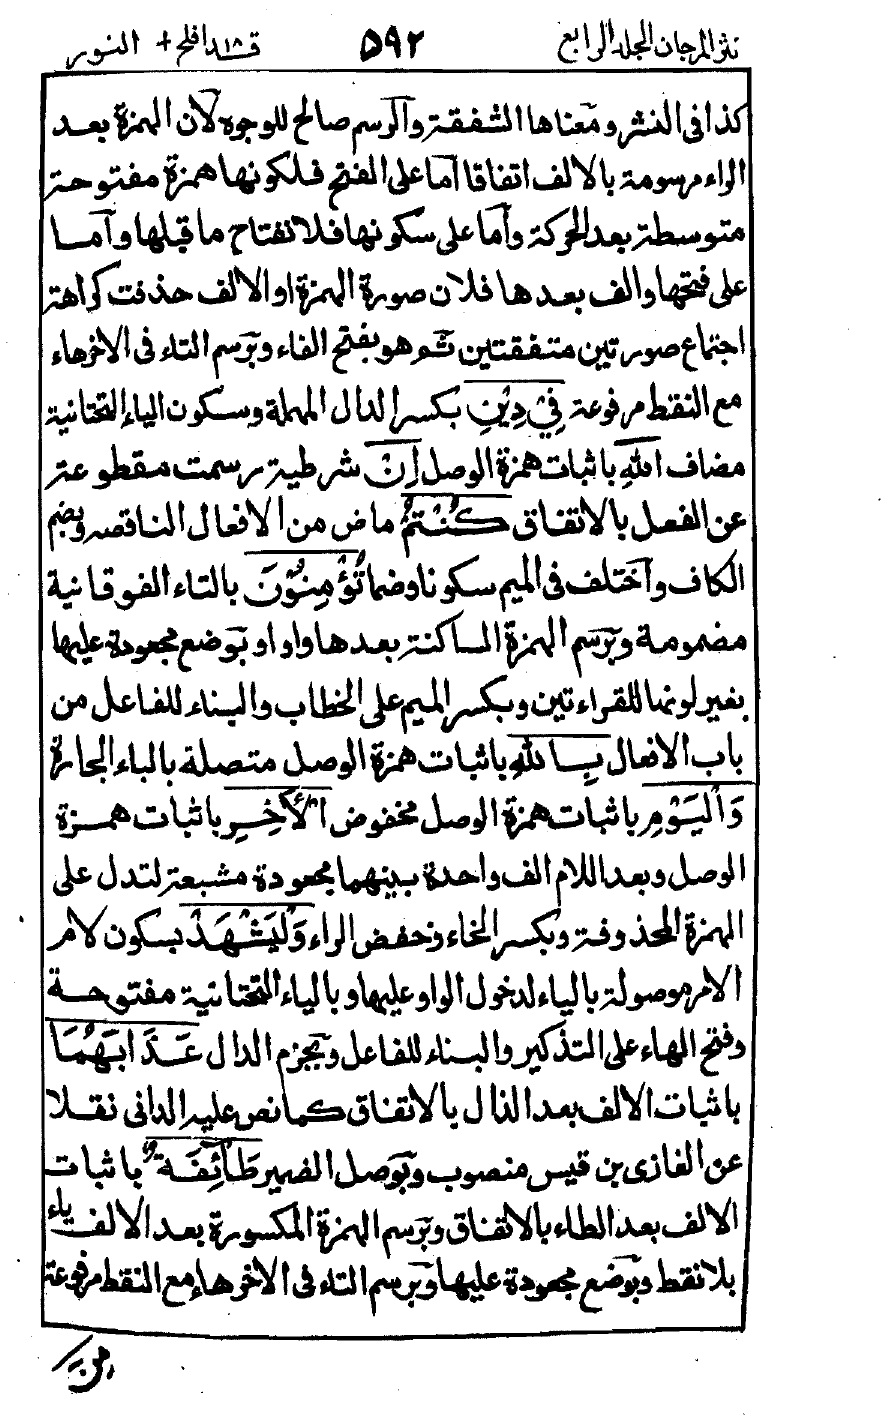 نثر المرجان المجلد الرابع ۵۹۲ قد افلح ۱۸ + النور
كذا فى النشر ومعناها الشفقة والرسم صالح للوجوه لأن الهمزة بعد
الراء مرسومة بالالف اتفاقا اما على الفتح فلكونها همزة مفتوحة
متوسطة بعد الحركة وأما على سكونها فلانفتاح ما قبلها وأما
على فتحها والف بعدها فلان صورة الهمزة او الالف حذفت كراهة
اجتماع صورتين متفقتين ثم هو بفتح الفاء وبرسم التاء فى الاخر هاء
مع النقط مرفوعة فِيْ دِيْنِ بكسر الدال المهملة وسكون الياء التحتانية
مضاف اللهِ باثبات همزة الوصل اِنْ شرطية رسمت مقطوعة
عن الفعل بالاتفاق كُنْتُمْ ماض من الافعال الناقصة وبضم
الكاف واختلف فى الميم سكونا وضما تُؤْمِنُوْنَ بالتاء الفوقانية
مضمومة وبرسم الهمزة الساكنة بعدها واوا وبوضع مجعودة عليها
بغير لونها للقراءتين وبكسر الميم على الخطاب والبناء للفاعل من
باب الافعال بِاللهِ باثبات همزة الوصل متصلة بالباء الجارة
وَالْيَوْمِ باثبات همزة الوصل مخفوض الْأٰخِرِ باثبات همزة
الوصل وبعد اللام الف واحدة بينهما مجعودة مشبعة لتدل على
الهمزة المحذوفة وبكسر الخاء وخفض الراء وَلْيَشْهَدْ بسكون لام
الامر موصولة بالياء لدخول الواو عليها وبالياء التحتانية مفتوحة
وفتح الهاء على التذكير والبناء للفاعل وبجزم الدال عَذَابَهُمَا
باثبات الالف بعد الذال بالاتفاق كما نص عليه الدانى نقلا
عن الغازى بن قيس منصوب وبوصل الضمير طَائِفَةٌ باثبات
الالف بعد الطاء بالاتفاق وبرسم الهمزة المكسورة بعد الالف ياء
بلا نقط وبوضع مجعودة عليها وبرسم التاء فى الاخر هاء مع النقط مرفوعة
من